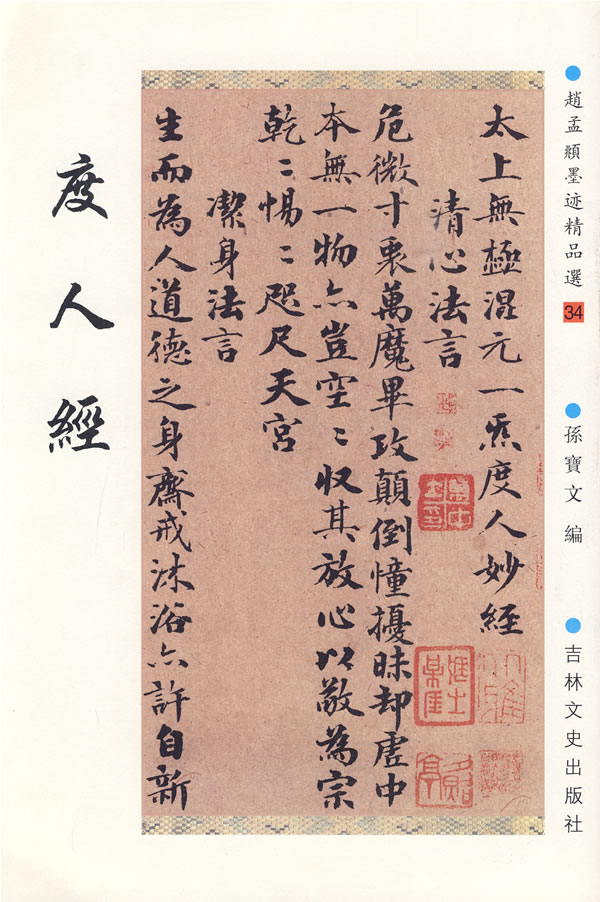 趙孟頫墨迹精品選 34
孫寶文 編
吉林文史出版社
太上無極混元一炁度人妙經
清心法言
危微寸衷萬魔畢攻顛倒憧擾昧却虛中
本無一物亦豈空〻収其放心以敬為宗
乾〻惕〻咫尺天宮
潔身法言
生而為人道德之身齋戒沐浴亦許自新
度人經